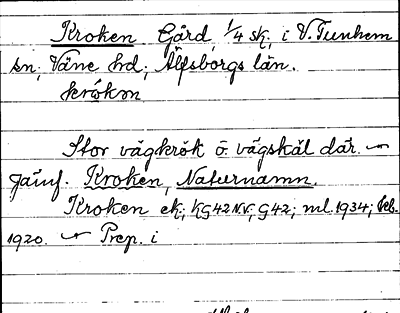 Kroken Gård, 1/4 sk., i V. Tunhem
sn, Väne hd, Älfsborgs län.
krókɷn
Stor vägkrök o. vägskäl där. —
Jämf. Kroken, Naturnamn.
Kroken ek., KG42NV, G42; ml. 1934;
1920. — Prep. i